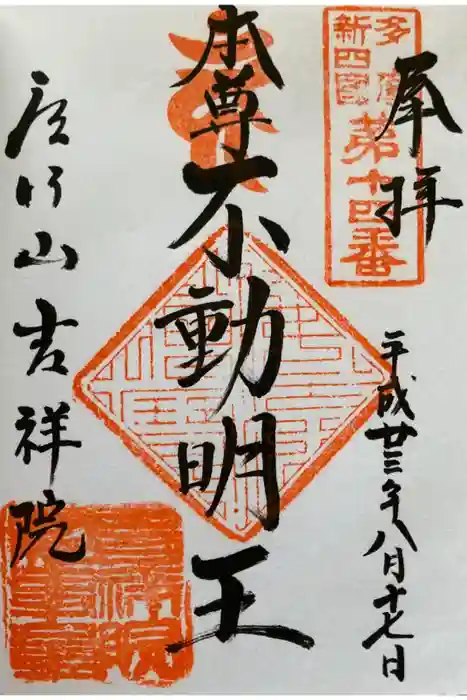 奉拝
多摩新四国
第十四番
平成廿三年八月十七日
本尊不動明王
山吉祥院